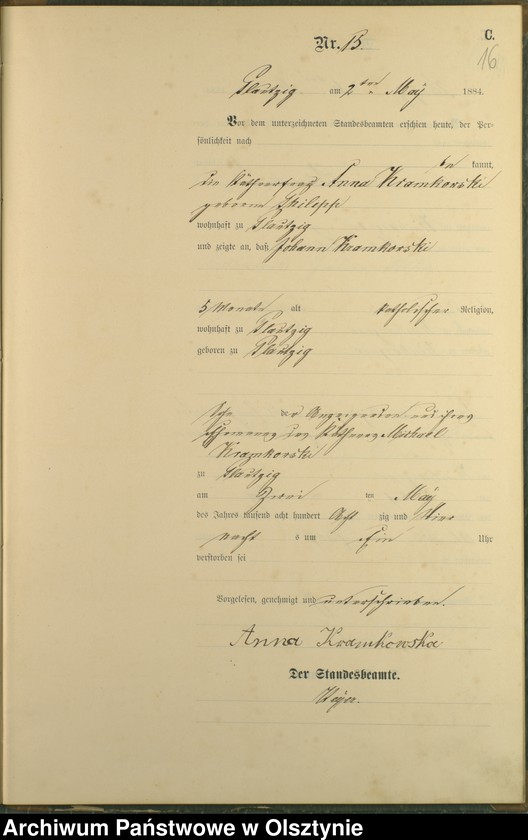 C.
16
Nr. 13.
Plautzig am 2ten May 1884.
Vor dem unterzeichneten Standesbeamten erschien heute, der Per-
sönlichkeit nach
kannt,
die Käthnerfrau Anna Kramkowski
geborene Philipp
wohnhaft zu Plautzig
und zeigte an, daß Johann Kramkowski
5 Monate alt katholischer Religion,
wohnhaft zu Plautzig
geboren zu Plautzig
Sohn der Anzeigenden und ihres
Ehemannes des Käthners Michael
Kramkowski
zu Plautzig
am Zwei ten May
des Jahres tausend acht hundert Acht zig und Vier
Nacht s um Ein Uhr
verstorben sei
Vorgelesen, genehmigt und unterschrieben.
Anna Kramkowska
Der Standesbeamte.
Archiwum Państwowe w Olsztynie